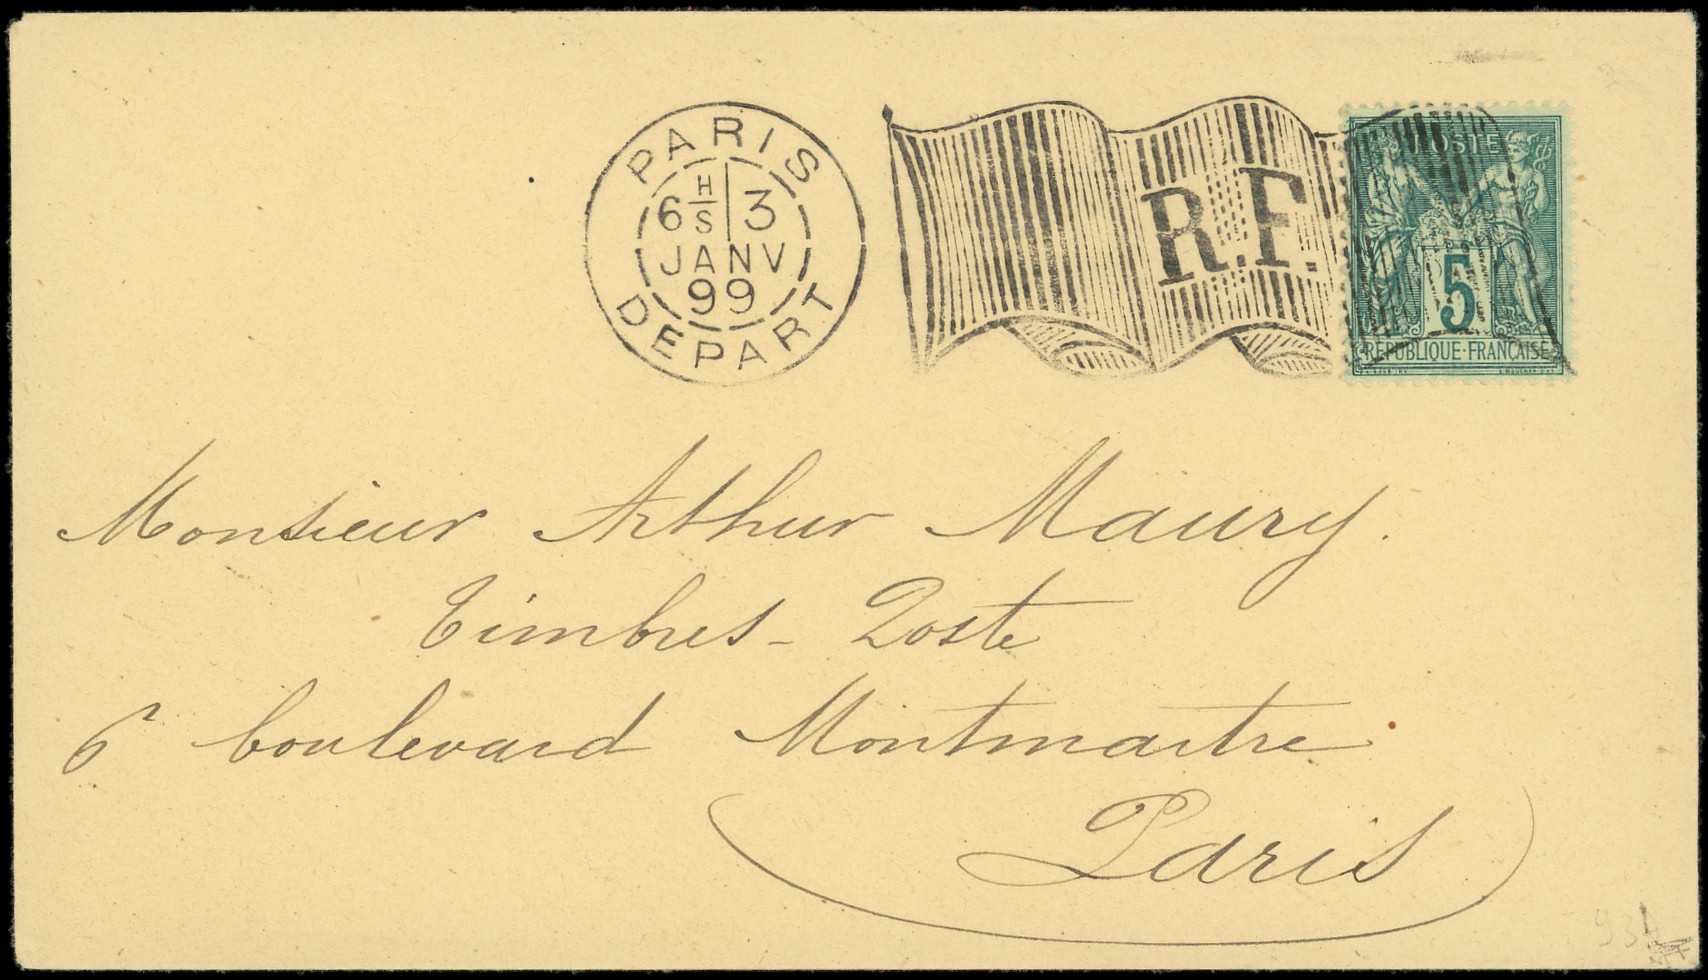 PARIS
6 H/S 3
JANV
99
DEPART
R.F.
POSTE
5
RÉPUBLIQUE·FRANÇAISE
Monsieur Arthur Maury.
Timbres-Poste
6 boulevard Montmartre
Paris